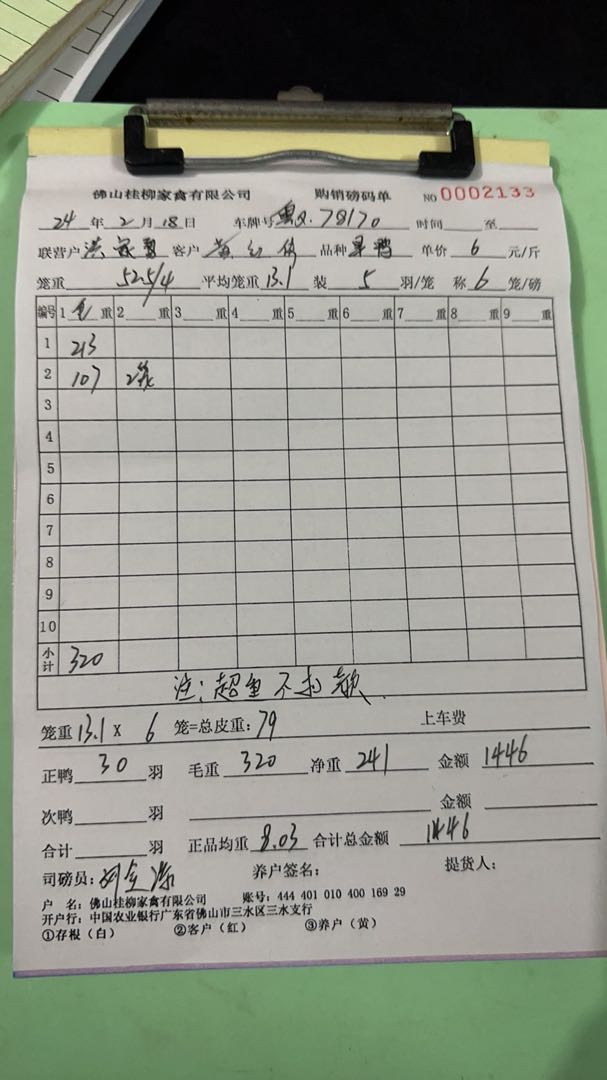 佛山桂柳家禽有限公司 购销磅码单 NO 0002133
24 年 2 月 18 日 车牌号 78170 时间 至
联营户 洪 客户 黄红 品种 鸭 单价 6 元/斤
笼重 52.5/4 平均笼重 13.1 装 5 羽/笼 称 6 笼/磅
编号 1 毛 重 2 重 3 重 4 重 5 重 6 重 7 重 8 重 9 重
1 213
2 107 2笼
3
4
5
6
7
8
9
10
小计 320
注:超重不扣款.
笼重 13.1 X 6 笼=总皮重: 79 上车费
正鸭 30 羽 毛重 320 净重 241 金额 1446
次鸭 羽 金额
合计 羽 正品均重 8.03 合计总金额 1446
司磅员: 刘 养户签名: 提货人:
户 名: 佛山桂柳家禽有限公司 账号: 444 401 010 400 169 29
开户行: 中国农业银行广东省佛山市三水区三水支行
①存根(白) ②客户(红) ③养户(黄)